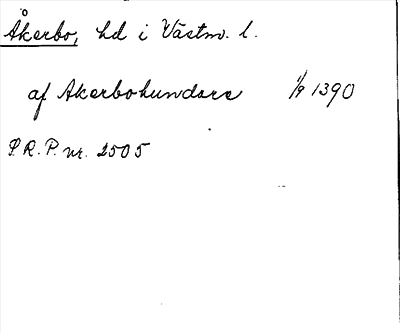 Åkerbo, hd i Västm. l.
af Akerbohundare 1/9 1390
S.R.P. nr. 2505